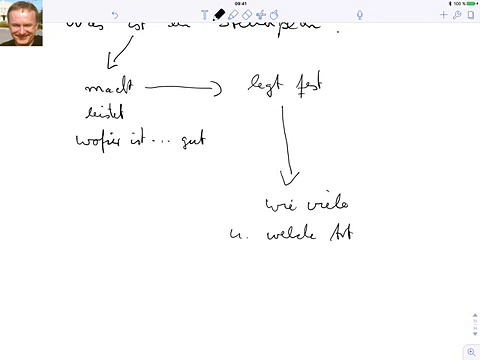 09:41
100 %
Was ist ein Stellenplan?
macht
legt fest
leistet
wofür ist ... gut
wie viele
u. welche Art